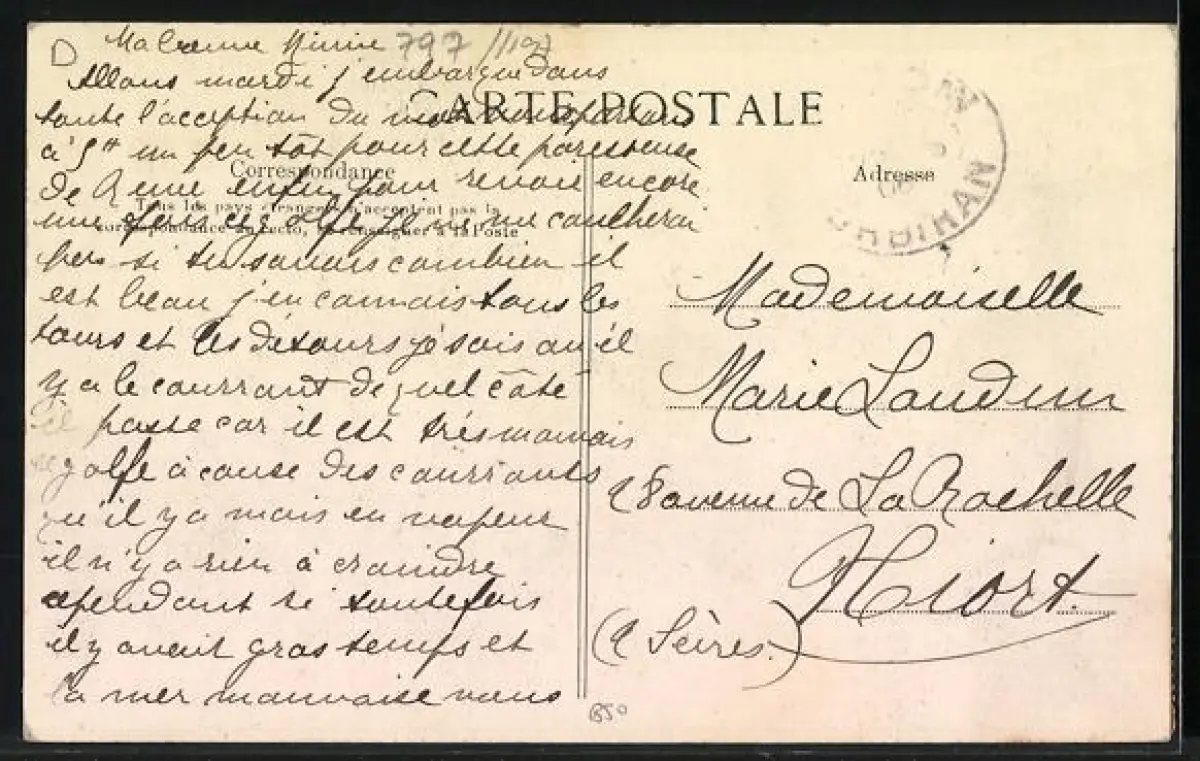 D Ma 797
Allons mardi j'embarque dans
toute l'acception du mot
à 5h un peu tôt pour cette paresseuse
de enfin pour revoir encore
une fois ce golfe je me coucherai
pas si tu savais combien il
est beau j'en connais tous les
tours et les détours je sais où il
y a le courrant de quel côté
il passe car il est très mauvais
ce golfe à cause des courrants
qu'il y a mais en vapeur
il n'y a rien à craindre
cependant si toutefois
il y avait gros temps et
la mer mauvaise nous
CARTE POSTALE
Correspondance
Tous les pays étrangers n'acceptent pas la
correspondance au recto, se renseigner à la Poste
Adresse
Mademoiselle
Marie Laudun
avenue de La Rochelle
Niort.
(2 Sèvres.)